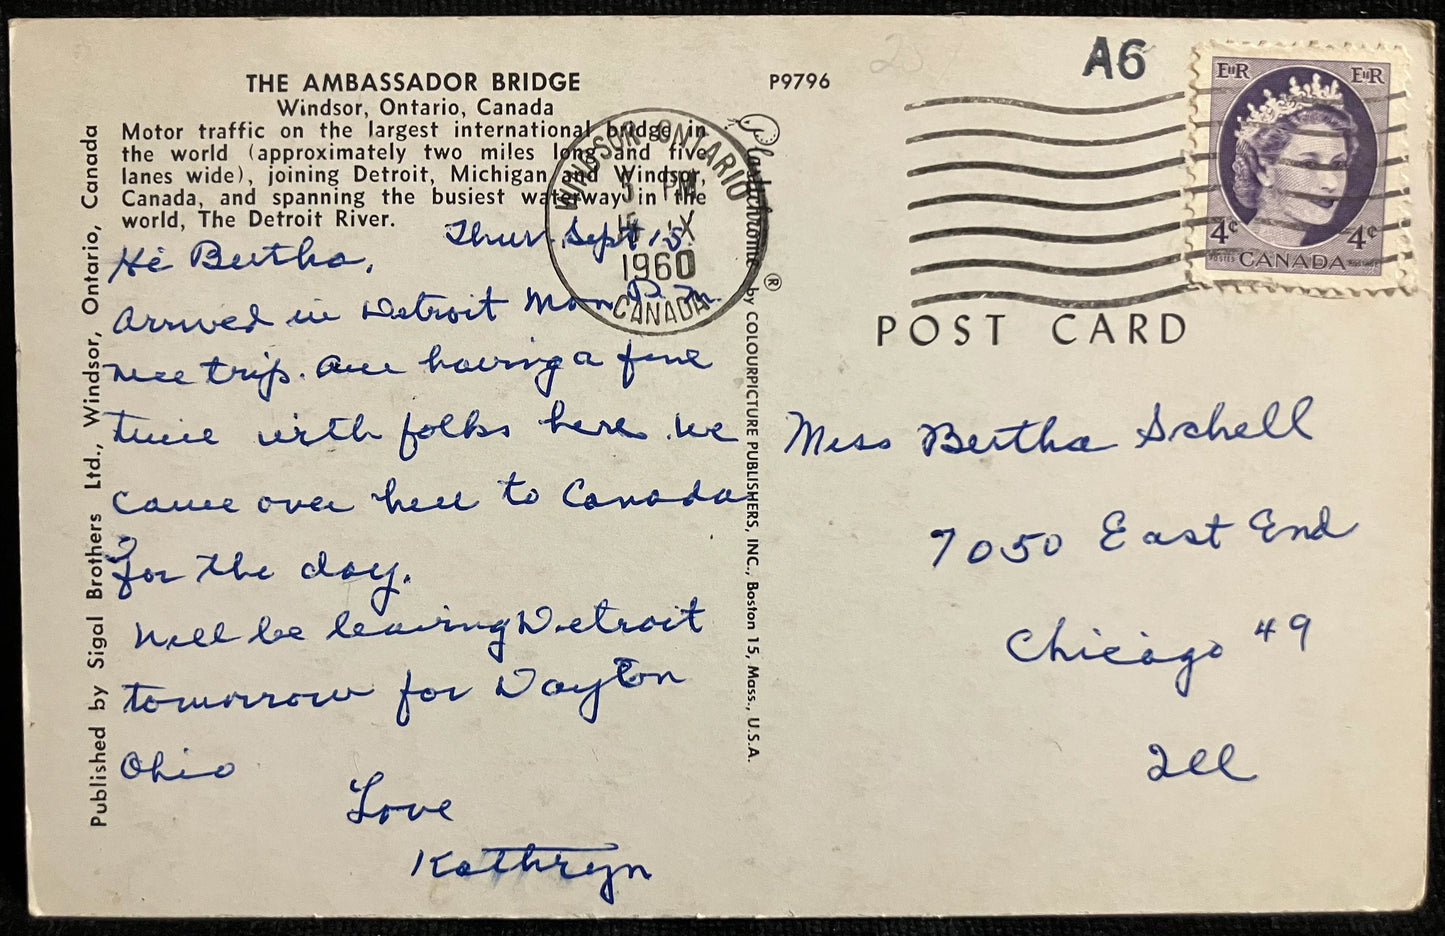 THE AMBASSADOR BRIDGE
Windsor, Ontario, Canada
Motor traffic on the largest international bridge in
the world (approximately two miles long and five
lanes wide), joining Detroit, Michigan and Windsor,
Canada, and spanning the busiest waterway in the
world, The Detroit River.
Thur. Sept 15
Hi Bertha,
Arrived in Detroit Mon P.M.
nice trip. Are having a fine
time with folks here. We
came over here to Canada
for the day.
Will be leaving Detroit
tomorrow for Dayton
Ohio
Love
Kathryn
Published by Sigal Brothers Ltd., Windsor, Ontario, Canada
P9796
Plastichrome ® by COLOURPICTURE PUBLISHERS, INC., Boston 15, Mass., U.S.A.
WINDSOR ONTARIO
5 PM
15 IX
1960
CANADA
A6
EIIR EIIR
4¢ 4¢
POSTES CANADA POSTAGE
POST CARD
Miss Bertha Schell
7050 East End
Chicago 49
Ill